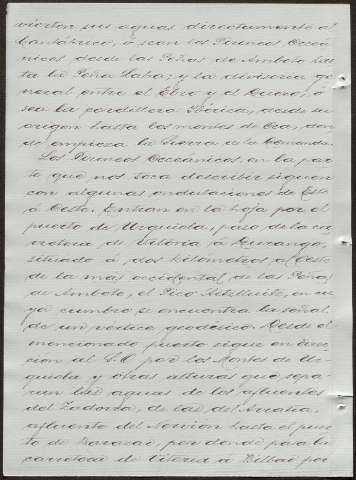 vierten sus aguas directamente al
Cantábrico, ó sean los Pirineos Oceá
nicos desde las Peñas de Amboto has
ta la Peña Labra; y la divisoria ge
neral entre el Ebro y el Duero, ó
sea la cordillera Ibérica, desde su
origen hasta los montes de Oca, don
de empieza la Sierra de la Demanda.
Los Pirineos Oceánicos, en la par
te que nos toca describir siguen
con algunas ondulaciones de Este
á Oeste. Entran en la hoja por el
puerto de Urquiola, paso de la ca
rretera de Vitoria á Durango,
situado á dos kilómetros al Oeste
de la más occidental de las Peñas
de Amboto, el Pico, en cu
ya cumbre se encuentra la señal
de un vértice geodésico. Desde el
mencionado puerto sigue en direc
ción al S.O por los Montes de Ur
quiola y otras alturas que sepa
ran las aguas de los afluentes
del Zadorra, de las del Arratia,
afluente del Nervión hasta el puer
to de Barazar, por donde pasa la
carretera de Vitoria á Bilbao por